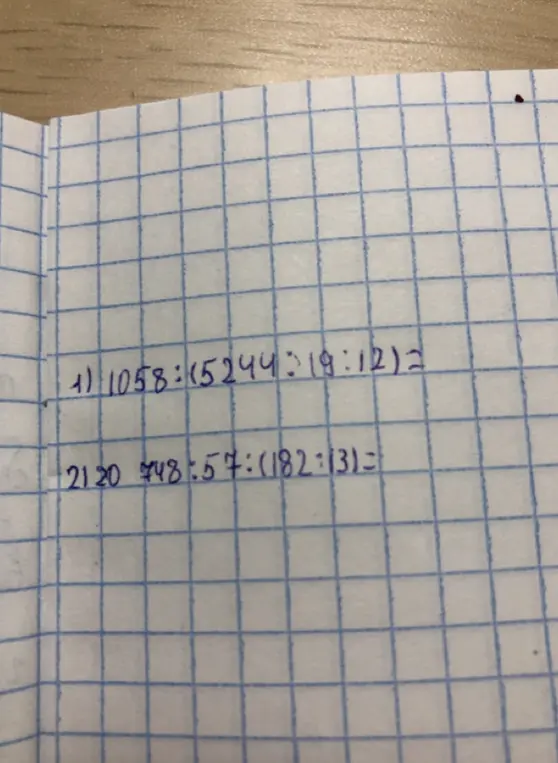 1) 1058:(5244:19:12)=
2) 20 748:57:(182:13)=